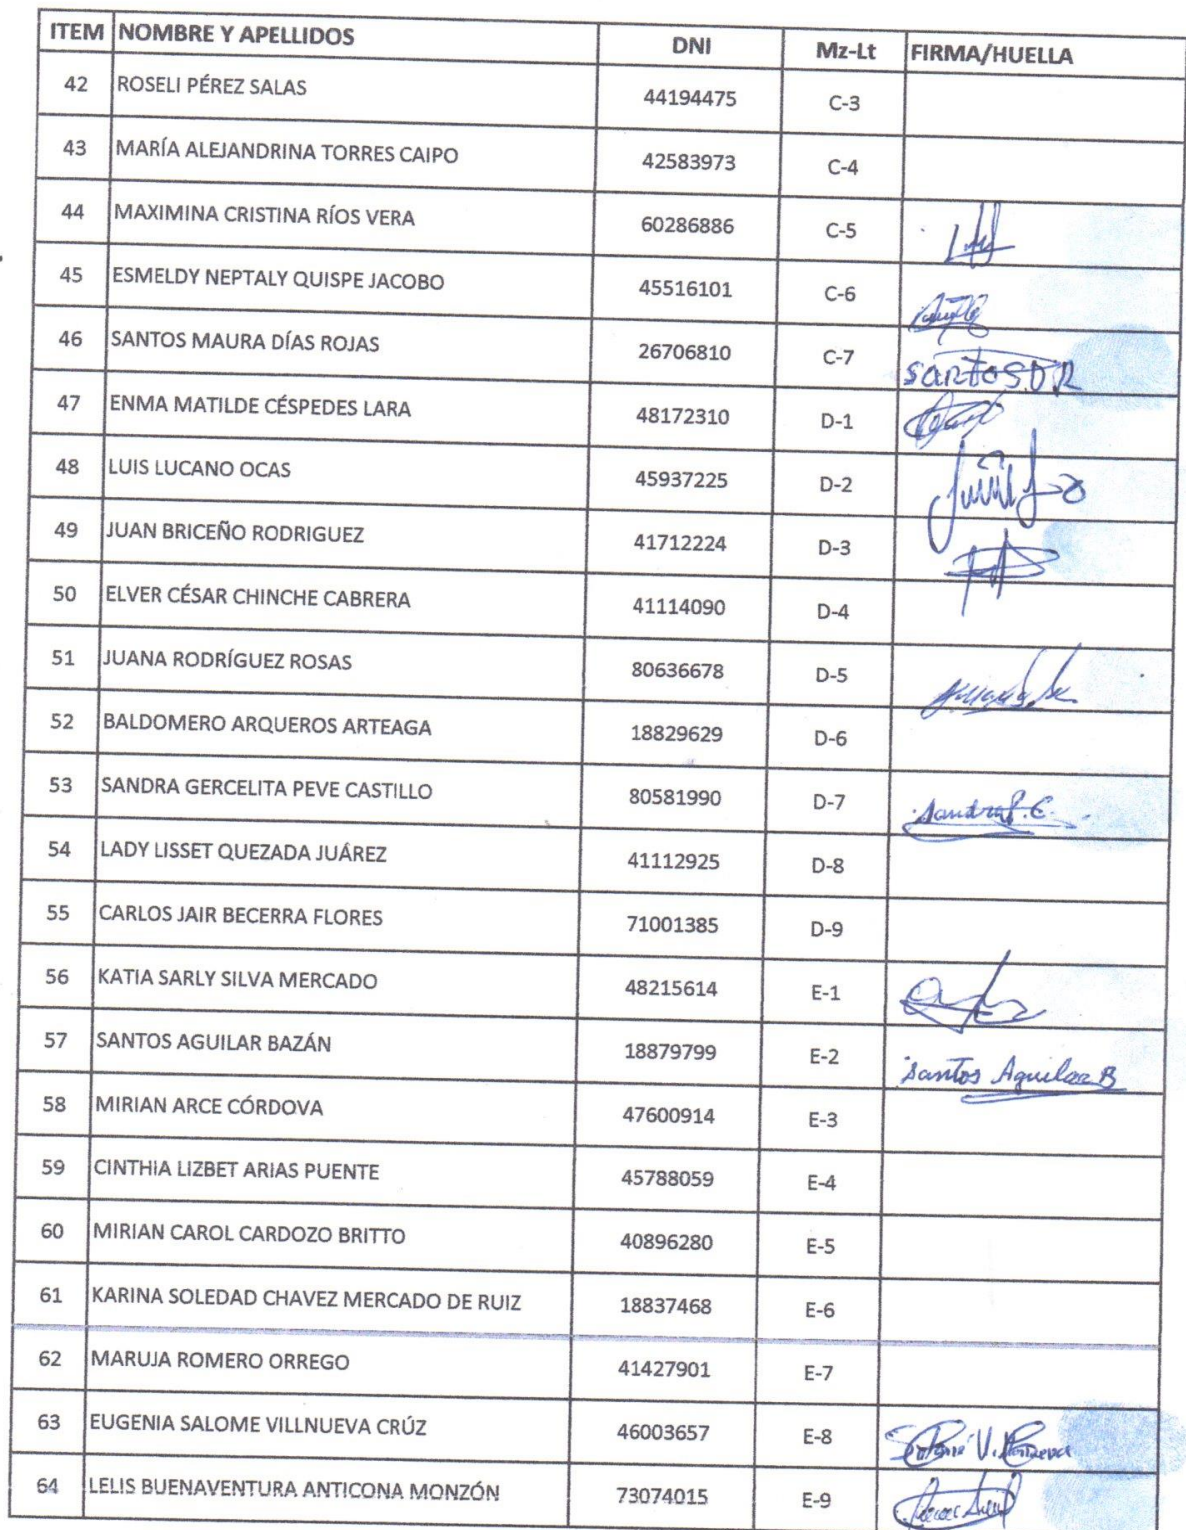 ITEM NOMBRE Y APELLIDOS DNI Mz-Lt FIRMA/HUELLA
42 ROSELI PÉREZ SALAS 44194475 C-3
43 MARÍA ALEJANDRINA TORRES CAIPO 42583973 C-4
44 MAXIMINA CRISTINA RÍOS VERA 60286886 C-5
45 ESMELDY NEPTALY QUISPE JACOBO 45516101 C-6
46 SANTOS MAURA DÍAS ROJAS 26706810 C-7 santos D R
47 ENMA MATILDE CÉSPEDES LARA 48172310 D-1
48 LUIS LUCANO OCAS 45937225 D-2
49 JUAN BRICEÑO RODRIGUEZ 41712224 D-3
50 ELVER CÉSAR CHINCHE CABRERA 41114090 D-4
51 JUANA RODRÍGUEZ ROSAS 80636678 D-5
52 BALDOMERO ARQUEROS ARTEAGA 18829629 D-6
53 SANDRA GERCELITA PEVE CASTILLO 80581990 D-7 Sandra P.C.
54 LADY LISSET QUEZADA JUÁREZ 41112925 D-8
55 CARLOS JAIR BECERRA FLORES 71001385 D-9
56 KATIA SARLY SILVA MERCADO 48215614 E-1
57 SANTOS AGUILAR BAZÁN 18879799 E-2 Santos Aguilar B
58 MIRIAN ARCE CÓRDOVA 47600914 E-3
59 CINTHIA LIZBET ARIAS PUENTE 45788059 E-4
60 MIRIAN CAROL CARDOZO BRITTO 40896280 E-5
61 KARINA SOLEDAD CHAVEZ MERCADO DE RUIZ 18837468 E-6
62 MARUJA ROMERO ORREGO 41427901 E-7
63 EUGENIA SALOME VILLNUEVA CRÚZ 46003657 E-8
64 LELIS BUENAVENTURA ANTICONA MONZÓN 73074015 E-9